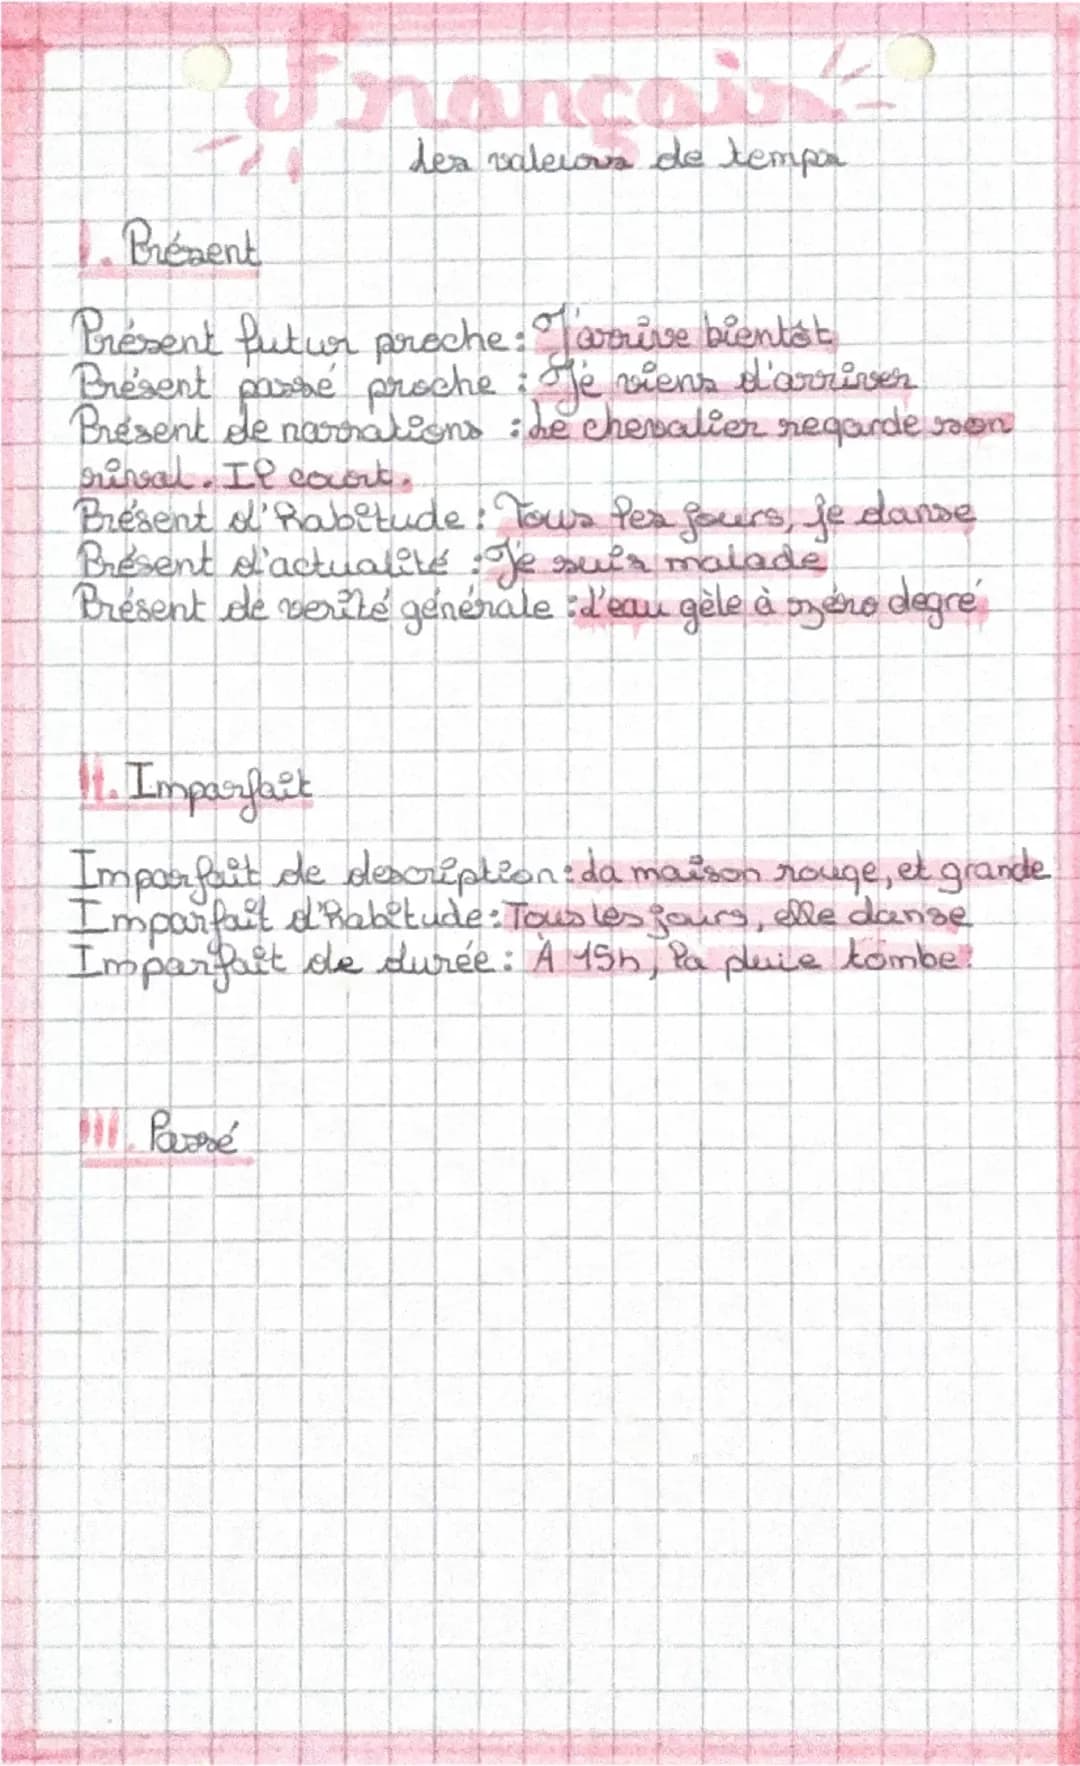 Français
Les valeurs de temps
I. Présent
Présent futur proche : J'arrive bientôt
Présent passé proche : Je viens d'arriver
Présent de narrations : Le chevalier regarde son
rival. Il court.
Présent d'habitude : Tous les jours, je danse
Présent d'actualité : Je suis malade
Présent de verité générale : L'eau gèle à zéro degré
II. Imparfait
Imparfait de description : La maison rouge, et grande
Imparfait d'habitude : Tous les jours, elle danse
Imparfait de durée : À 15h, la pluie tombe.
III. Passé